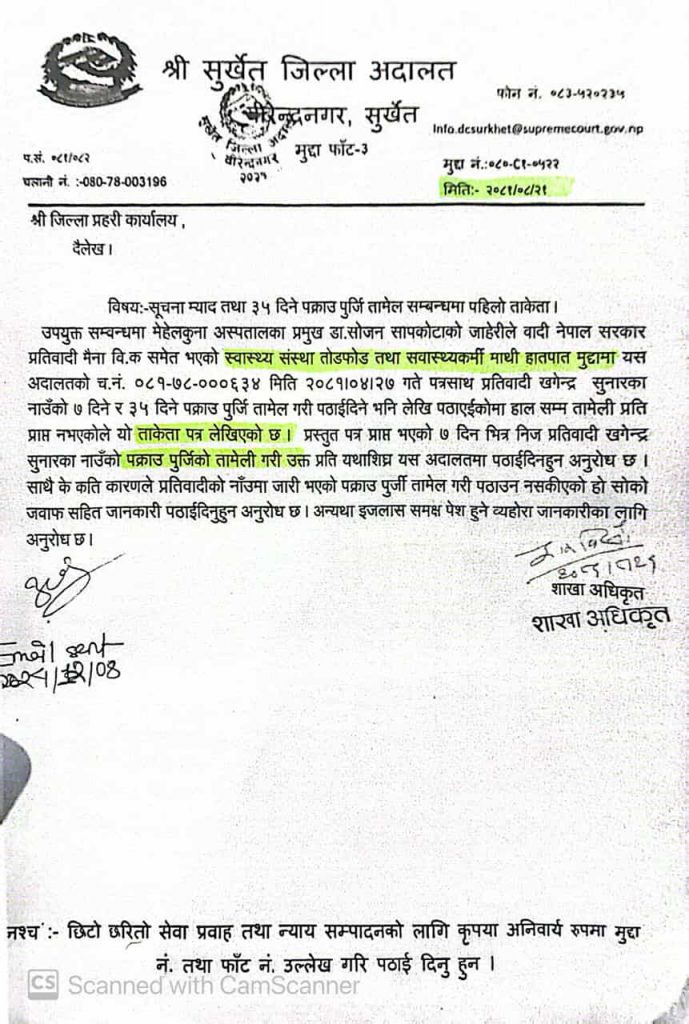 श्री सुर्खेत जिल्ला अदालत
फोन नं. ०८३-५२०२३५
वीरेन्द्रनगर, सुर्खेत
Info.dcsurkhet@supremecourt.gov.np
सुर्खेत जिल्ला अदालत
वीरेन्द्रनगर
२०२१
मुद्दा फाँट-३
प.सं. ०८१/०८२
मुद्दा नं.:०८०-C1-०५२२
चलानी नं. :-080-78-003196
मितिः- २०८१/०८/२१
श्री जिल्ला प्रहरी कार्यालय,
दैलेख।
विषयः-सूचना म्याद तथा ३५ दिने पक्राउ पुर्जि तामेल सम्बन्धमा पहिलो ताकेता।
उपयुक्त सम्वन्धमा मेहेलकुना अस्पतालका प्रमुख डा.सोजन सापकोटाको जाहेरीले वादी नेपाल सरकार
प्रतिवादी मैना वि.क समेत भएको स्वास्थ्य संस्था तोडफोड तथा सवास्थ्यकर्मी माथी हातपात मुद्दामा यस
अदालतको च.नं. ०८१-७८-०००६३४ मिति २०८१।०४।२७ गते पत्रसाथ प्रतिवादी खगेन्द्र सुनारका
नाउँको ७ दिने र ३५ दिने पक्राउ पुर्जि तामेल गरी पठाईदिने भनि लेखि पठाएईकोमा हाल सम्म तामेली प्रति
प्राप्त नभएकोले यो ताकेता पत्र लेखिएको छ। प्रस्तुत पत्र प्राप्त भएको ७ दिन भित्र निज प्रतिवादी खगेन्द्र
सुनारका नाउँको पक्राउ पुर्जिको तामेली गरी उक्त प्रति यथाशिघ्र यस अदालतमा पठाईदिनहुन अनुरोध छ ।
साथै के कति कारणले प्रतिवादीको नाँउमा जारी भएको पक्राउ पुर्जी तामेल गरी पठाउन नसकीएको हो सोको
जवाफ सहित जानकारी पठाईदिनुहुन अनुरोध छ। अन्यथा इजलास समक्ष पेश हुने व्यहोरा जानकारीका लागि
अनुरोध छ।
शाखा अधिकृत
शाखा अधिकृत
Email sent
नश्च :- छिटो छरितो सेवा प्रवाह तथा न्याय सम्पादनको लागि कृपया अनिवार्य रुपमा मुद्दा
नं. तथा फाँट नं. उल्लेख गरि पठाई दिनु हुन ।
CS Scanned with CamScanner